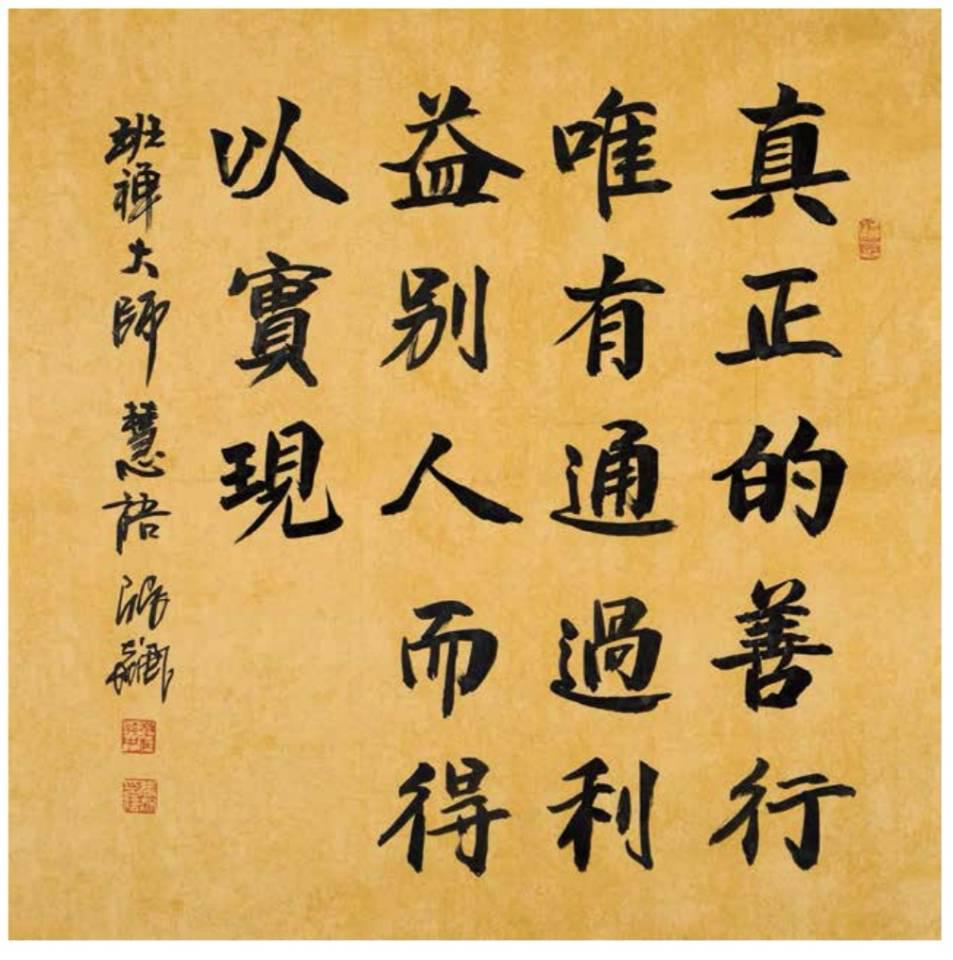 真正的善行
唯有通過利
益别人而得
以實現
班禪大師慧語